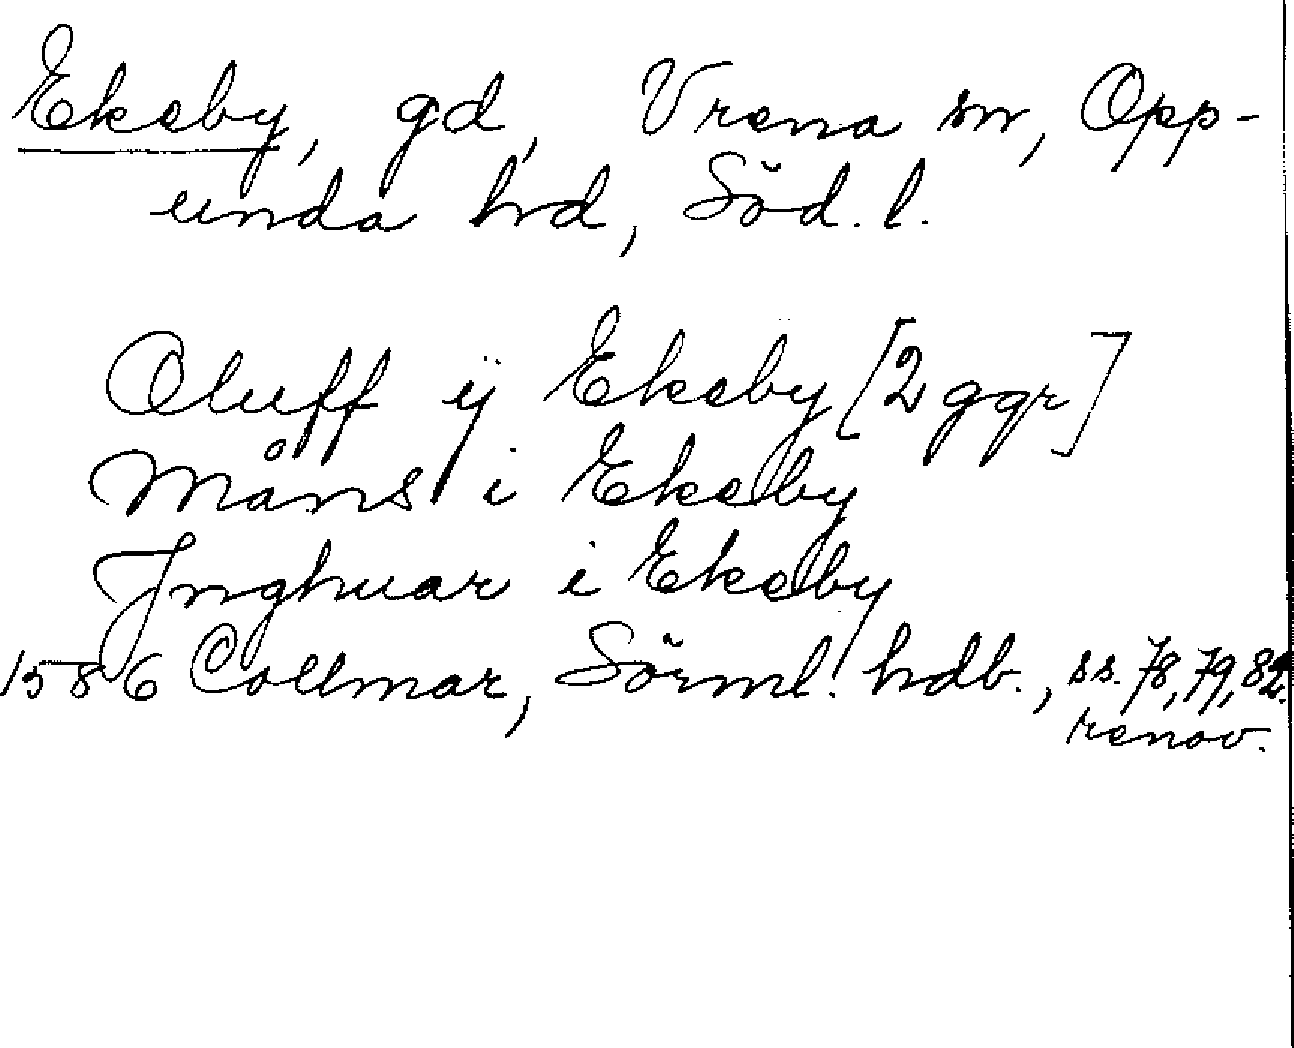 Ekeby, gd, Vrena sn, Opp-
unda hrd, Söd. l.
Oluff ÿ Ekeby [2 ggr]
Måns i Ekeby
Jnghuar i Ekeby
1586 Collmar, Sörml. hdb., ss. 78, 79, 82.
renov.